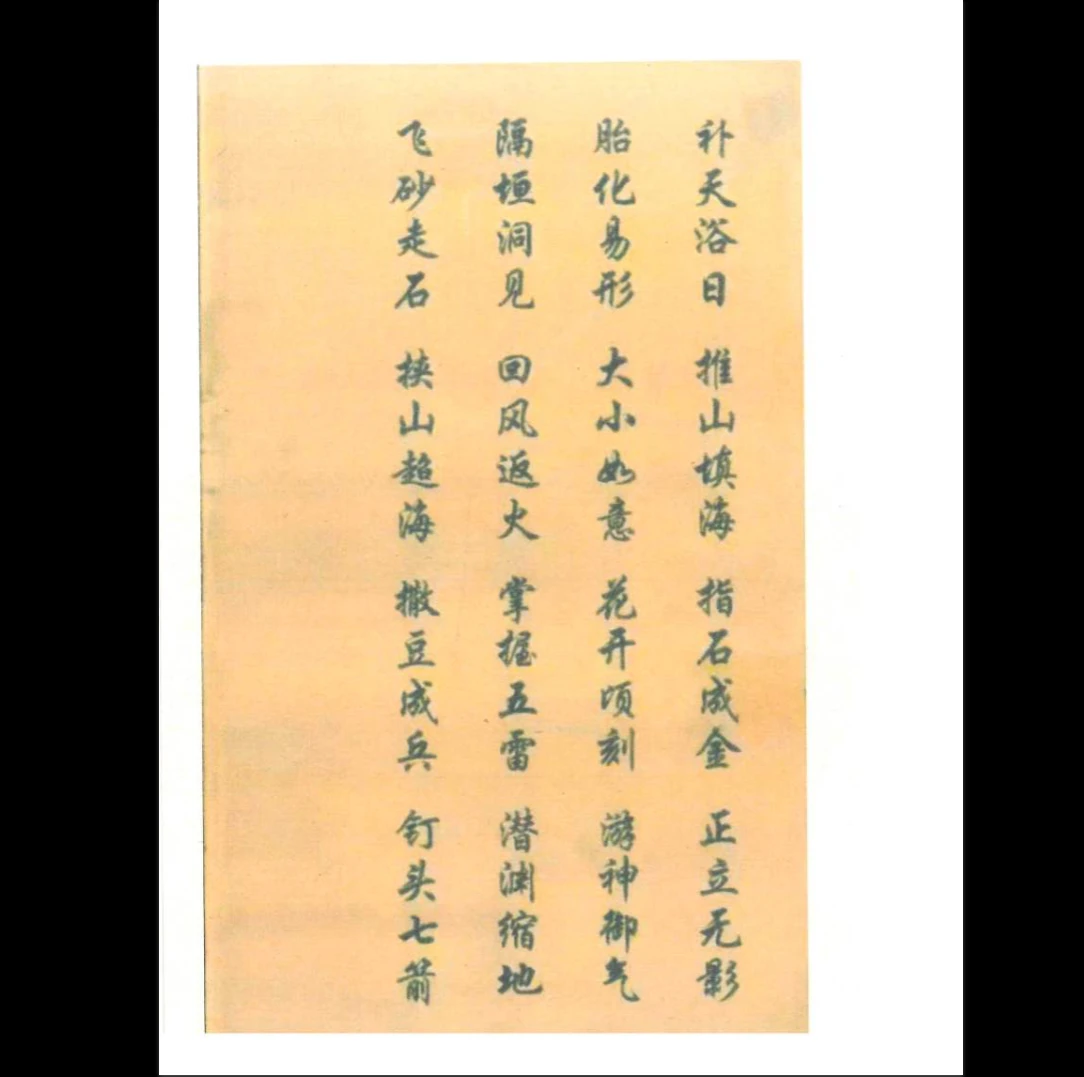 补天浴日 推山填海 指石成金 正立无影
胎化易形 大小如意 花开顷刻 游神御气
隔垣洞见 回风返火 掌握五雷 潜渊缩地
飞砂走石 挟山超海 撒豆成兵 钉头七箭